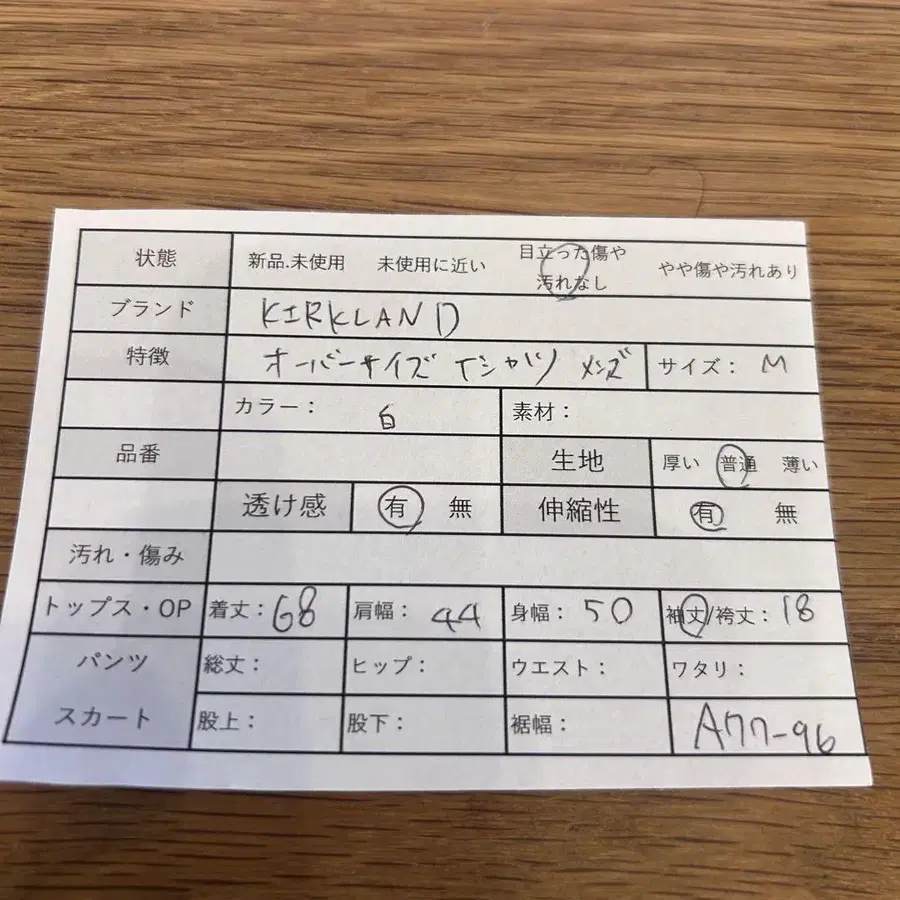 状態 新品.未使用 未使用に近い 目立った傷や汚れなし やや傷や汚れあり
ブランド KIRKLAND
特徴 オーバーサイズ Tシャツ メンズ サイズ: M
カラー: 白 素材:
品番 生地 厚い 普通 薄い
透け感 有 無 伸縮性 有 無
汚れ・傷み
トップス・OP 着丈: 68 肩幅: 44 身幅: 50 袖丈/袴丈: 18
パンツ 総丈: ヒップ: ウエスト: ワタリ:
スカート 股上: 股下: 裾幅: A77-96